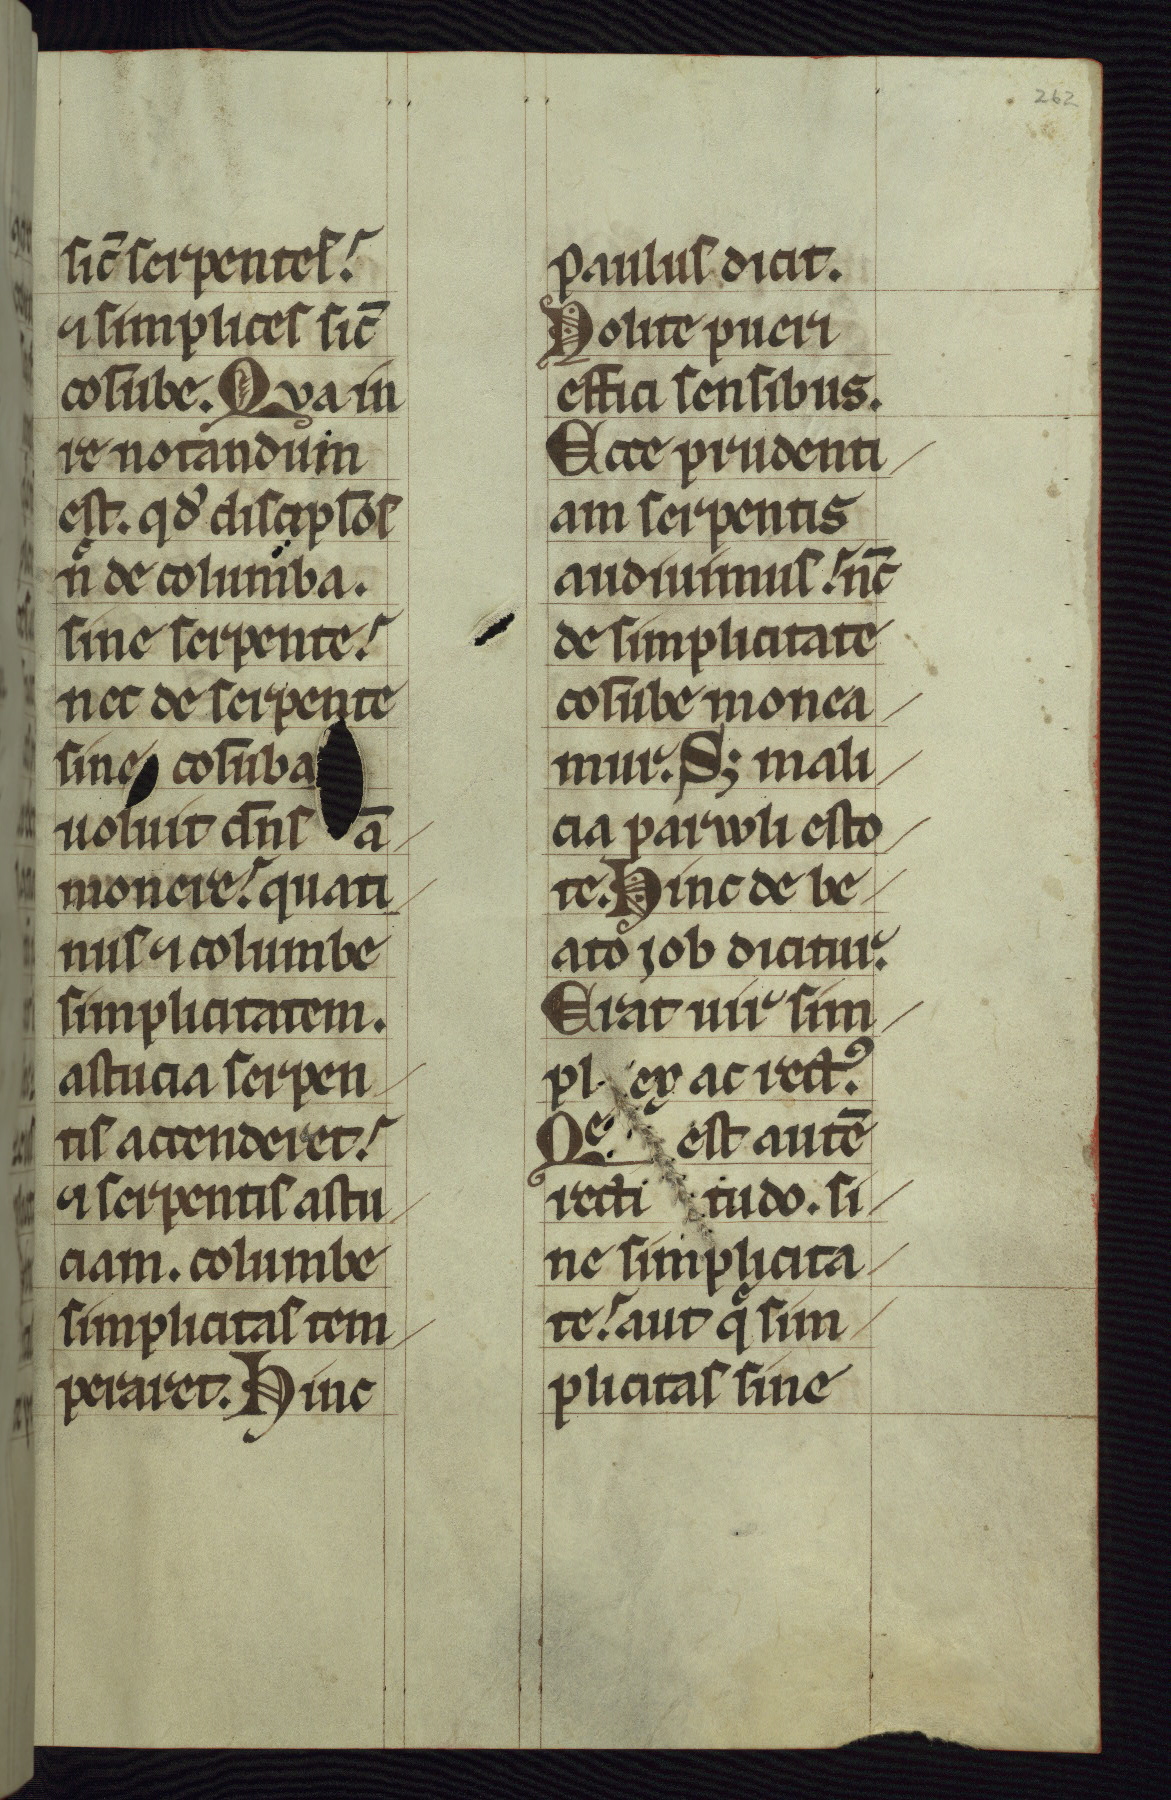 262
sic̄ serpentes.
⁊ simplices sic̄
colūbe. Qva in
re notandum
est. qđ discip̄los
n̊ de columba.
sine serpente.
nec de serpente
sine colūba
uoluit dn̄s ā
monere. quati
nus ⁊ columbe
simplicitatem.
astucia serpen
tis accenderet.
⁊ serpentis astu
ciam. columbe
simplicitas tem
peraret. Hinc
paulus dicit.
Nolite pueri
effici sensibus.
Ecce prudenti
am serpentis
audiuimus. nc̄
de simplicitate
colūbe monea
mur. Sꝫ mali
cia parwli esto
te. Hinc de be
ato job dicitur.
Erat uir sim
pl ex ac rectꝰ.
Qͤ. est autē
recti tudo. si
ne simplicita
te. aut q̊ sim
plicitas sine